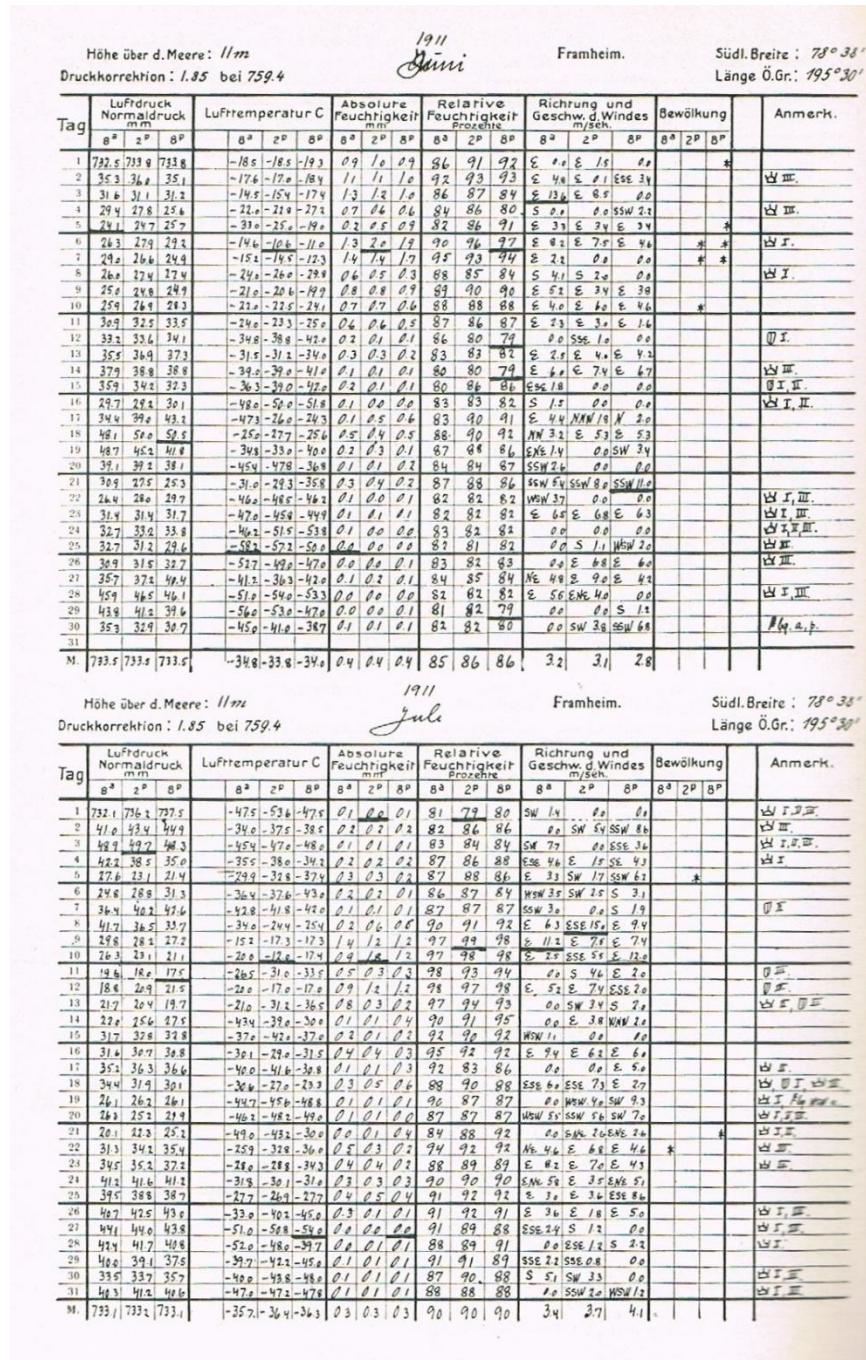 1911
Höhe über d. Meere: 11m Juni Framheim. Südl. Breite: 78° 38'
Druckkorrektion: 1.85 bei 759.4 Länge Ö.Gr.: 195° 30'
Tag Luftdruck Normaldruck mm Lufttemperatur C Absolute Feuchtigkeit mm Relative Feuchtigkeit Prozente Richtung und Geschw. d. Windes m/sek. Bewölkung Anmerk.
8ª 2ᵖ 8ᵖ 8ª 2ᵖ 8ᵖ 8ª 2ᵖ 8ᵖ 8ª 2ᵖ 8ᵖ 8ª 2ᵖ 8ᵖ 8ª 2ᵖ 8ᵖ
1 732.5 733.8 733.8 -18.5 -18.5 -19.3 0.9 1.0 0.9 86 91 92 E 0.0 E 1.5 0.0 *
2 35.3 36.0 35.1 -17.6 -17.0 -18.4 1.1 1.1 1.0 92 93 93 E 4.8 E 0.1 ESE 3.4 III.
3 31.6 31.1 31.2 -14.5 -15.4 -17.4 1.3 1.2 1.0 86 87 84 E 13.6 E 8.5 0.0
4 29.4 27.8 25.6 -22.0 -22.8 -27.2 0.7 0.6 0.6 84 86 80 S 0.0 0.0 SSW 2.2 III.
5 24.1 24.7 25.7 -33.0 -25.0 -19.0 0.2 0.5 0.9 82 86 91 E 3.3 E 3.4 E 3.4 *
6 26.3 27.9 29.2 -14.6 -10.6 -11.0 1.3 2.0 1.9 90 96 97 E 8.2 E 7.5 E 4.6 * * I.
7 29.0 26.6 24.9 -15.2 -14.5 -12.3 1.4 1.4 1.7 95 93 94 E 2.2 0.0 0.0 * *
8 26.0 27.4 27.4 -24.0 -26.0 -29.8 0.6 0.5 0.3 88 85 84 S 4.1 S 2.0 0.0 I.
9 25.0 24.8 24.9 -21.0 -20.6 -19.9 0.8 0.8 0.9 89 90 90 E 5.2 E 3.4 E 3.8
10 25.9 26.9 28.3 -22.0 -22.5 -24.1 0.7 0.7 0.6 88 88 88 E 4.0 E 6.0 E 4.6 *
11 30.9 32.5 33.5 -24.0 -23.3 -25.0 0.6 0.6 0.5 87 86 87 E 2.3 E 3.0 E 1.6
12 33.2 33.6 34.1 -34.8 -38.8 -42.0 0.2 0.1 0.1 86 80 79 0.0 SSE 1.0 0.0 I.
13 35.5 36.9 37.3 -31.5 -31.2 -34.0 0.3 0.3 0.2 83 83 82 E 2.5 E 4.0 E 4.2
14 37.9 38.8 38.8 -39.0 -39.0 -41.0 0.1 0.1 0.1 80 80 79 E 6.0 E 7.4 E 6.7 III.
15 35.9 34.2 32.3 -36.3 -39.0 -42.0 0.2 0.1 0.1 80 86 86 ESE 1.8 0.0 0.0 I, II.
16 29.7 29.2 30.1 -48.0 -50.0 -51.8 0.1 0.0 0.0 83 83 82 S 1.5 0.0 0.0 I, II.
17 34.4 39.0 43.2 -47.3 -26.0 -24.3 0.1 0.5 0.6 83 90 91 E 4.4 NNW 1.8 N 2.0
18 48.1 50.0 50.5 -25.0 -27.7 -25.6 0.5 0.4 0.5 88 90 92 NW 3.2 E 5.3 E 5.3
19 48.7 45.2 41.8 -34.8 -33.0 -40.0 0.2 0.3 0.1 87 88 86 ENE 1.4 0.0 SW 3.4
20 39.1 39.2 38.1 -45.4 -47.8 -36.8 0.1 0.1 0.2 84 84 87 SSW 2.6 0.0 0.0
21 30.9 27.5 25.3 -31.0 -29.3 -35.8 0.3 0.4 0.2 87 88 86 SSW 5.4 SSW 8.0 SSW 11.0
22 26.4 28.0 29.7 -46.0 -48.5 -46.2 0.1 0.0 0.1 82 82 82 WSW 3.7 0.0 0.0 I, III.
23 31.4 31.4 31.7 -47.0 -45.8 -44.9 0.1 0.1 0.1 82 82 82 E 6.5 E 6.8 E 6.3 I, III.
24 32.7 33.2 33.8 -46.2 -51.5 -53.8 0.1 0.0 0.0 83 82 82 0.0 0.0 0.0 I, II, III.
25 32.7 31.2 29.6 -58.2 -57.2 -50.0 0.0 0.0 0.0 82 81 82 0.0 S 1.1 WSW 2.0
26 30.9 31.5 32.7 -52.7 -49.0 -47.0 0.0 0.0 0.1 83 82 83 0.0 E 6.8 E 6.0 III.
27 35.7 37.2 40.4 -41.2 -36.3 -42.0 0.1 0.2 0.1 84 85 84 NE 4.8 E 9.0 E 4.2
28 45.9 46.5 46.1 -51.0 -54.0 -53.3 0.0 0.0 0.0 82 82 82 E 5.5 ENE 4.0 0.0 I, III.
29 43.8 41.2 39.6 -56.0 -53.0 -47.0 0.0 0.0 0.1 81 82 79 0.0 0.0 S 1.2
30 35.3 32.9 30.7 -45.0 -41.0 -38.7 0.1 0.1 0.1 82 82 80 0.0 SW 3.8 SSW 6.8 a, p.
31
M. 733.5 733.5 733.5 -34.8 -33.8 -34.0 0.4 0.4 0.4 85 86 86 3.2 3.1 2.8
1911
Höhe über d. Meere: 11m Juli Framheim. Südl. Breite: 78° 38'
Druckkorrektion: 1.85 bei 759.4 Länge Ö.Gr.: 195° 30'
Tag Luftdruck Normaldruck mm Lufttemperatur C Absolute Feuchtigkeit mm Relative Feuchtigkeit Prozente Richtung und Geschw. d. Windes m/sek. Bewölkung Anmerk.
8ª 2ᵖ 8ᵖ 8ª 2ᵖ 8ᵖ 8ª 2ᵖ 8ᵖ 8ª 2ᵖ 8ᵖ 8ª 2ᵖ 8ᵖ 8ª 2ᵖ 8ᵖ
1 732.1 736.2 737.5 -47.5 -53.6 -47.5 0.1 0.0 0.1 81 79 80 SW 1.4 0.0 0.0 I, II, III.
2 41.0 43.4 44.9 -34.0 -37.5 -38.5 0.2 0.2 0.2 82 86 86 0.0 SW 5.4 SSW 8.6 III.
3 48.9 49.7 48.3 -45.4 -47.0 -48.0 0.1 0.1 0.1 83 84 84 SW 7.7 0.0 ESE 3.6 I, II, III.
4 42.2 38.5 35.0 -35.5 -38.0 -34.2 0.2 0.2 0.2 87 86 88 ESE 4.6 E 1.5 SE 4.3 I
5 27.6 23.1 21.4 -29.9 -32.8 -37.4 0.3 0.3 0.2 87 88 86 E 3.3 SW 1.7 SSW 6.2 *
6 24.8 28.8 31.3 -36.4 -37.6 -43.0 0.2 0.2 0.1 86 87 84 WSW 3.5 SW 2.5 S 3.1
7 36.4 40.2 42.6 -42.8 -41.8 -42.0 0.1 0.1 0.1 87 87 87 SSW 3.0 0.0 S 1.9
8 41.7 36.5 33.7 -34.0 -24.4 -25.4 0.2 0.6 0.5 90 91 92 E 6.3 ESE 15.0 E 9.4
9 29.8 28.2 27.2 -15.2 -17.3 -17.3 1.4 1.2 1.2 97 99 98 E 11.2 E 7.5 E 7.4
10 26.3 23.1 21.1 -20.0 -12.0 -17.4 0.9 1.8 1.2 97 98 98 E 2.5 ESE 5.5 E 12.0
11 19.6 18.0 17.5 -26.5 -31.0 -33.5 0.5 0.3 0.3 98 93 94 0.0 S 4.6 E 2.0
12 18.8 20.9 21.5 -20.0 -17.0 -17.0 0.9 1.2 1.2 98 97 98 E 5.2 E 7.4 ESE 2.0
13 21.7 20.4 19.7 -21.0 -31.2 -36.5 0.8 0.3 0.2 97 94 93 0.0 SW 3.4 S 2.0
14 22.0 25.6 27.5 -43.4 -39.0 -30.0 0.1 0.1 0.4 90 91 95 0.0 E 3.8 WNW 2.0
15 31.7 32.8 32.8 -37.0 -42.0 -37.0 0.2 0.1 0.2 92 90 92 WSW 1.1 0.0 0.0
16 31.6 30.7 30.8 -30.1 -29.0 -31.5 0.4 0.4 0.3 95 92 92 E 9.4 E 6.2 E 6.0
17 35.2 36.3 36.6 -40.0 -41.6 -30.8 0.1 0.1 0.3 92 83 86 0.0 0.0 E 5.0
18 34.4 31.9 30.1 -30.6 -27.0 -23.3 0.3 0.5 0.6 88 90 88 ESE 6.0 ESE 7.3 E 2.7
19 26.1 26.2 26.1 -44.7 -45.6 -48.8 0.1 0.1 0.1 90 87 87 0.0 WSW 4.0 SW 9.3
20 26.3 25.2 21.9 -46.2 -48.2 -49.0 0.1 0.1 0.0 87 87 87 WSW 5.5 SSW 5.6 SW 7.0
21 20.1 22.3 25.2 -49.0 -43.2 -30.0 0.0 0.1 0.4 84 88 92 0.0 ENE 2.6 ENE 2.6 *
22 31.3 34.2 35.4 -25.9 -32.8 -36.0 0.5 0.3 0.2 94 92 92 NE 4.6 E 6.8 E 4.6 *
23 34.5 35.2 37.2 -28.0 -28.8 -34.3 0.4 0.4 0.2 88 89 89 E 8.2 E 7.0 E 4.3
24 41.2 41.6 41.2 -31.8 -30.1 -31.0 0.3 0.3 0.3 90 90 90 ENE 5.8 E 3.5 ENE 5.1
25 39.5 38.8 38.7 -27.7 -26.9 -27.7 0.4 0.5 0.4 91 92 92 E 3.0 E 3.6 ESE 8.6
26 40.7 42.5 43.0 -33.0 -40.2 -45.0 0.3 0.1 0.1 91 92 91 E 3.6 E 1.8 E 5.0
27 44.1 44.0 43.8 -51.0 -50.8 -54.0 0.0 0.0 0.0 91 89 88 ESE 2.4 S 1.2 0.0
28 42.4 41.7 40.8 -52.0 -48.0 -39.7 0.0 0.1 0.1 88 89 91 0.0 ESE 1.2 S 2.2 I
29 40.0 39.1 37.5 -39.7 -42.2 -45.0 0.1 0.1 0.1 91 91 89 SSE 2.2 SSE 0.8 0.0
30 33.5 33.7 35.7 -40.0 -43.8 -48.0 0.1 0.1 0.1 87 90 88 S 5.1 SW 3.3 0.0
31 40.3 41.2 40.6 -47.0 -47.2 -47.8 0.1 0.1 0.1 88 88 88 0.0 SSW 2.0 WSW 1.2
M. 733.1 733.2 733.1 -35.7 -36.4 -36.3 0.3 0.3 0.3 90 90 90 3.4 3.7 4.1